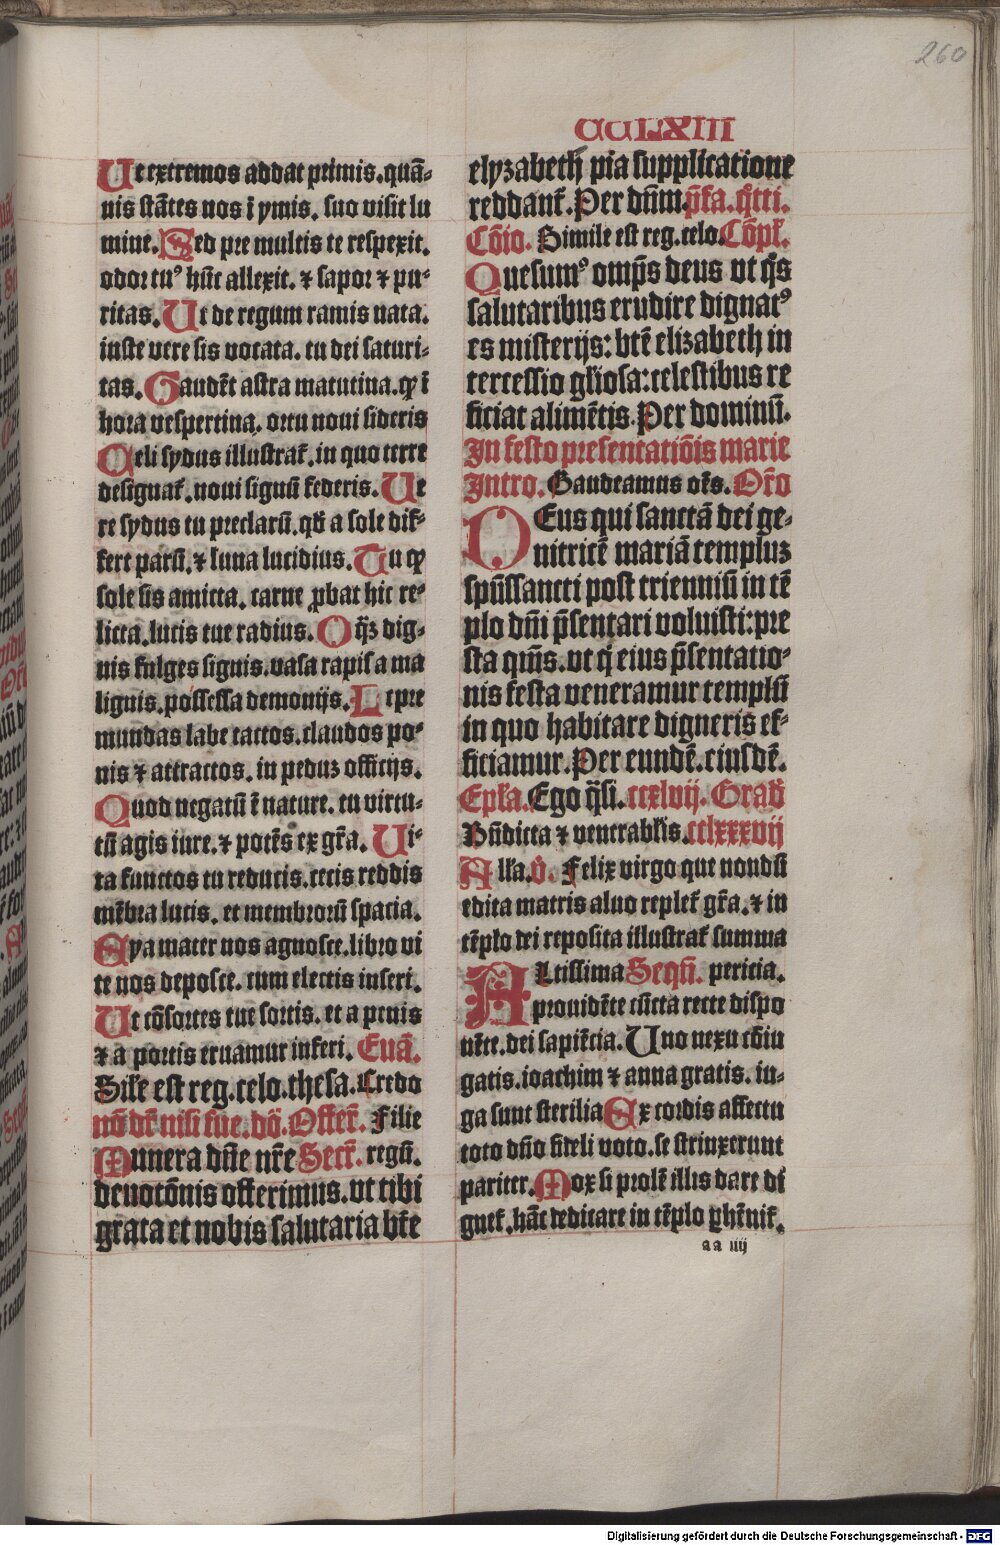 260
CCLXIII
Ut extremos addat primis. quā⸗
nis stātes nos ī ymis. suo visit lu
mine. Sed pre multis te respexit.
odor tu⁹ hūc allexit. ⁊ sapor ⁊ pu⸗
ritas. Ut de regum ramis nata.
iuste vere sis vocata. tu dei saturi⸗
tas. Gaudēt astra matutina. ꝙ ī
hora vespertina. ortu noui sideris
Celi sydus illustrat᷑. in quo terre
designat᷑. noui signū federis. Ue
re sydus tu preclarū. qd̄ a sole dif⸗
fert parū. ⁊ luna lucidius. Tu ꝙ
sole sis amicta. carne ꝓbat hic re⸗
licta. lucis tue radius. O q̄ꝫ dig⸗
nis fulges signis. vasa rapis a ma
lignis. possessa demonijs. Lepre
mundas labe tactos. claudos po⸗
nis ⁊ attractos. in peduꝫ officijs.
Quod negatū ē nature. tu virtu⸗
tū agis iure. ⁊ potēs ex gr̄a. Ui⸗
ta functos tu reducis. cecis reddis
mēbra lucis. et membrorū spacia.
Eya mater nos agnosce. libro vi
te nos deposce. cum electis inseri.
Ut cōsortes tue sortis. et a penis
⁊ a portis eruamur inferi. Euā.
Sil̄e est reg. celo. thesa. Credo
nō dr̄ nisi fue. dō. Offer̄. Filie
Munera dn̄e nr̄e Secr̄. regū.
deuotōnis offerimus. vt tibi
grata et nobis salutaria bt̄e
elyzabeth pia supplicatione
reddant᷑. Per dn̄m. p̄fa. q̄tti.
Cōio. Simile est reg. celo. Cōpl᷑.
Quesum⁹ omp̄s deus vt q̄s
salutaribus erudire dignat⁹
es misterijs: bt̄e elizabeth in
tercessio gl̄iosa: celestibus re
ficiat alimētis. Per dominū.
In festo presentatiōis marie
Intro. Gaudeamus oēs. Or̄o
DEus qui sanctā dei ge⸗
nitricē mariā templuꝫ
spūssancti post trienniū in tē
plo dn̄i p̄sentari voluisti: pre
sta qm̄s. vt q̄ eius p̄sentatio⸗
nis festa veneramur templū
in quo habitare digneris ef⸗
ficiamur. Per eundē. eiusdē.
Epl̄a. Ego q̄si. ccxlvij. Grad̄
Bn̄dicta ⁊ venerabl̄is. cclxxxvij
All̄a. v̄. Felix virgo que nondū
edita matris aluo replet᷑ gr̄a. ⁊ in
tēplo dei reposita illustrat᷑ summa
ALtissima Seqn̄. pericia.
prouidēte cūcta recte dispo
nēte. dei sapiētia. Uno nexu cōiu
gatis. ioachim ⁊ anna gratis. iu⸗
ga sunt sterilia Ex cordis affectu
toto dn̄o fideli voto. se strinxerunt
pariter. Mox si prolē illis dare di
gnet᷑. hāc dedicare in tēplo ꝑhēnit᷑.
aa iiij
Digitalisierung gefördert durch die Deutsche Forschungsgemeinschaft - DFG